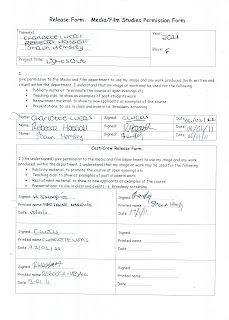 Release Form. Media/Film Studies Permission Form
Name(s)
CHARLOTTE LUCAS
REBECCA HASSALL
SHAUN HEMSLEY
Year
Block
F
Project Title
I
give permission to the Media and Film department to use my image and any work produced (both written and
video) within the department. I understand that my image or work may be used for the following
• Publicity material: to promote the course at open evenings etc
• Teaching aids: to show as examples of past students work
• Recruitment material: to show to new applicants as examples of the course
• Presentations: to use in class and events i.e. Broadway screening
Name: Charlotte Lucas
Signed
CLucas
Date
Name: Rebecca Hassall
Signed
Date
Name: Shaun Hemsley
Signed
Date
Cast/Crew Release Form
I (the undersigned) give permission to the media department to use my image and any work
produced, within the department. I understand that my image or work may be used for the following
• Publicity material: to promote the course at open evenings etc
• Teaching aids: to show as examples of past students work
• Recruitment material: to show to new applicants as examples of the course
• Presentations: to use in class and events i.e. Broadway screening
Signed
Printed name
Date
Signed
Printed name Shaun Hemsley
Date
Signed CLucas
Printed name CHARLOTTE LUCAS
Date
Signed
Printed name
Date
Signed RHassall
Printed name REBECCA HASSALL
Date
Signed
Printed name
Date